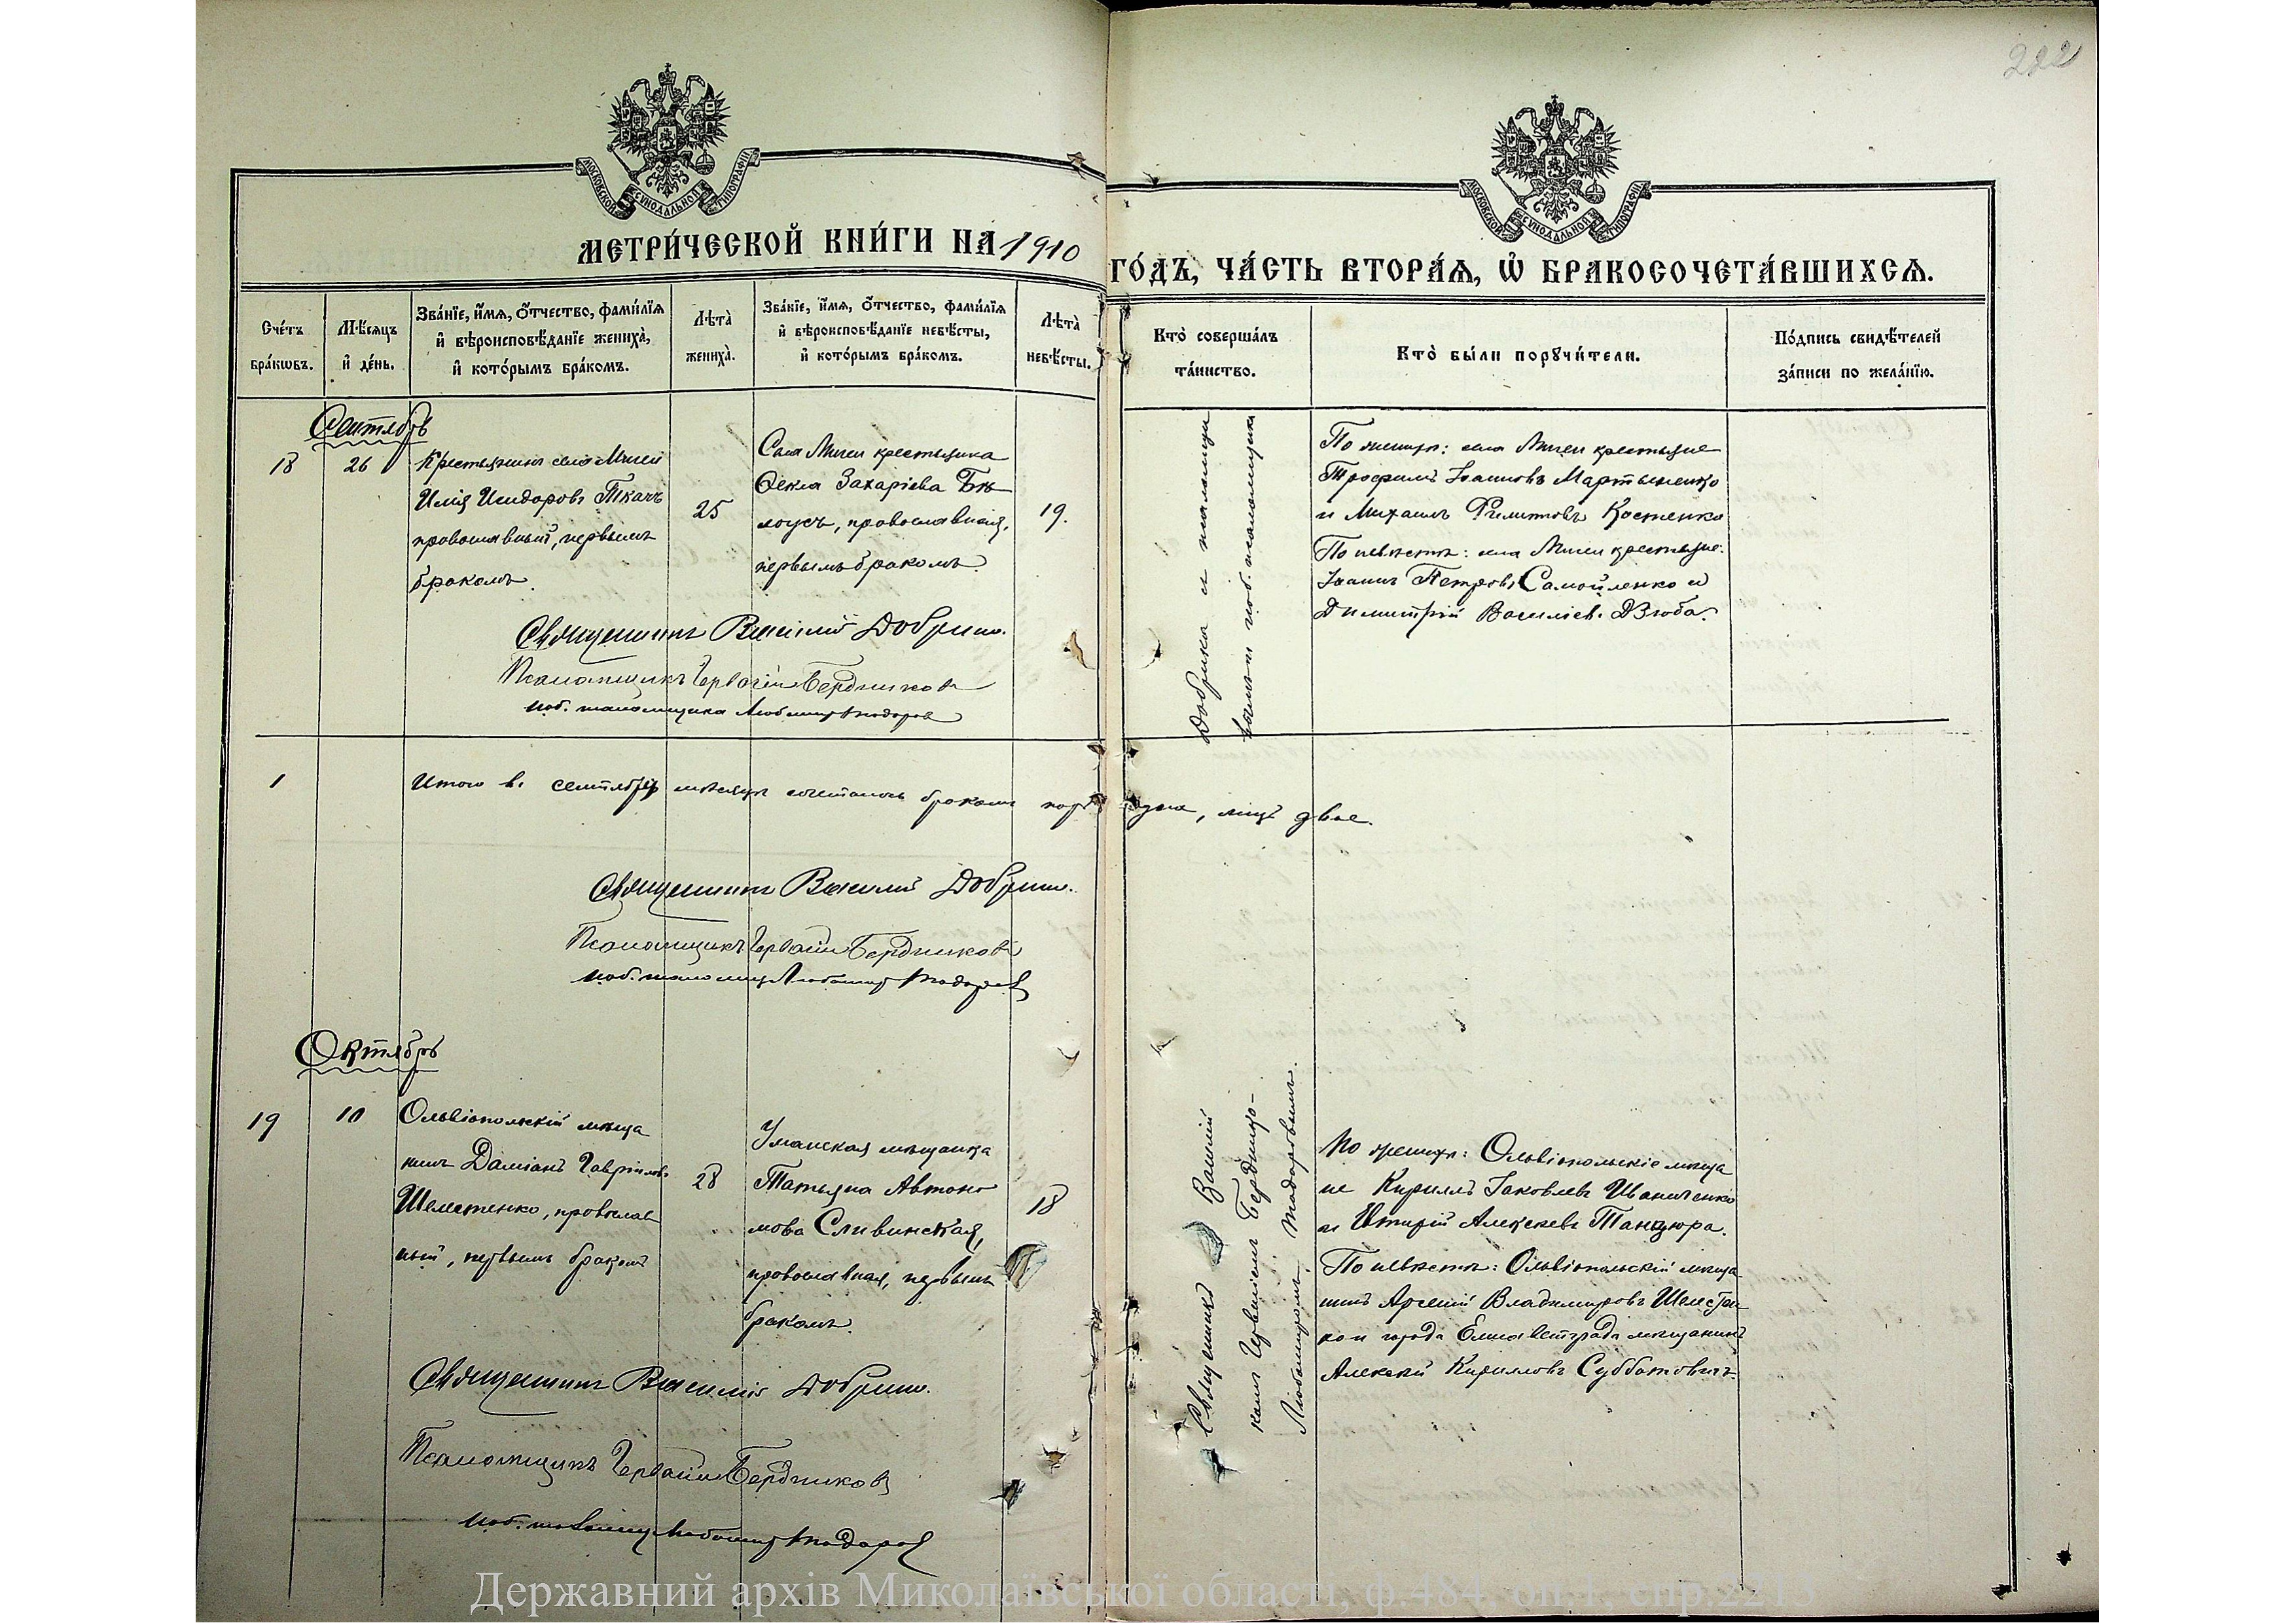 222
МОСКОВСКОЙ СУНОДАЛЬНОЙ ТИПОГРАФІИ
МОСКОВСКОЙ СУНОДАЛЬНОЙ ТИПОГРАФІИ
МЕТРИ́ЧЕСКОЙ КНИ́ГИ НА 1910 ГО́ДЪ, ЧА́СТЬ ВТОРА́Ѧ, Ѽ БРАКОСОЧЕТА́ВШИХСѦ.
Сче́тъ
бра́кѡвъ.
Мѣ́сяцъ
и҆ де́нь.
Зва́нїе, и҆́мѧ, ѻ҆́тчество, фами́лїѧ
и҆ вѣроисповѣ́данїе жениха̀,
и҆ кото́рымъ бра́комъ.
Лѣта̀
жениха̀.
Зва́нїе, и҆́мѧ, ѻ҆́тчество, фами́лїѧ
и҆ вѣроисповѣ́данїе невѣ́сты,
и҆ кото́рымъ бра́комъ.
Лѣта̀
невѣ́сты.
Кто̀ соверша́лъ
та́инство.
Кто̀ бы́ли порꙋчи́тели.
По́дпись свидѣ́телей
за́писи по жела́нїю.
Сентябрь
18
26
Крестьянинъ села Мигеи
Илія Исидоровъ Ткачъ
православный, первымъ
бракомъ.
25
Села Мигеи крестьянка
Ѳекла Захаріева Бѣ
лоусъ, православная,
первымъ бракомъ.
19.
Добрика и псаломщи
По женихѣ: села Мигеи крестьяне
Трофимъ Іоанновъ Мартыненко
и Михаилъ Филиповъ Костенко
По невѣстѣ: села Мигеи крестьяне:
Іоаннъ Петровъ Самойленко и
Димитрій Василіевъ Дзюба.
Священникъ Василій Добрик.
Псаломщикъ Гервасій Бердников
1
Итого въ сентябрѣ мѣсяцѣ сочеталось бракомъ паръ одна, лицъ двое.
Священникъ Василій Добрик.
Псаломщикъ Гервасій Бердников
Октябрь
19
10
Ольвіопольскій мѣща
нинъ Даміанъ Гавріиловъ
Шелестенко, православ
ный, первымъ бракомъ
28
Уманская мѣщанка
Татьяна Автоно
мова Сливинская,
православная, первымъ
бракомъ.
18
Священникъ Василій
комъ Гервасіемъ Бердницо-
Любомиромъ Тодоровымъ.
По женихѣ: Ольвіопольскіе мѣща
не Кириллъ Іаковлевъ Иваниченко
и Алексѣевъ Танцюра.
По невѣстѣ: Ольвіопольскій мѣща
нинъ Арсеній Владимировъ Шелестен
ко и города Елисаветграда мѣщанинъ
Алексій Кирилловъ Субботовичъ.
Священникъ Василій Добрик.
Псаломщикъ Гервасій Бердников
Державний архів Миколаївської області, ф.484, оп.1, спр.2213